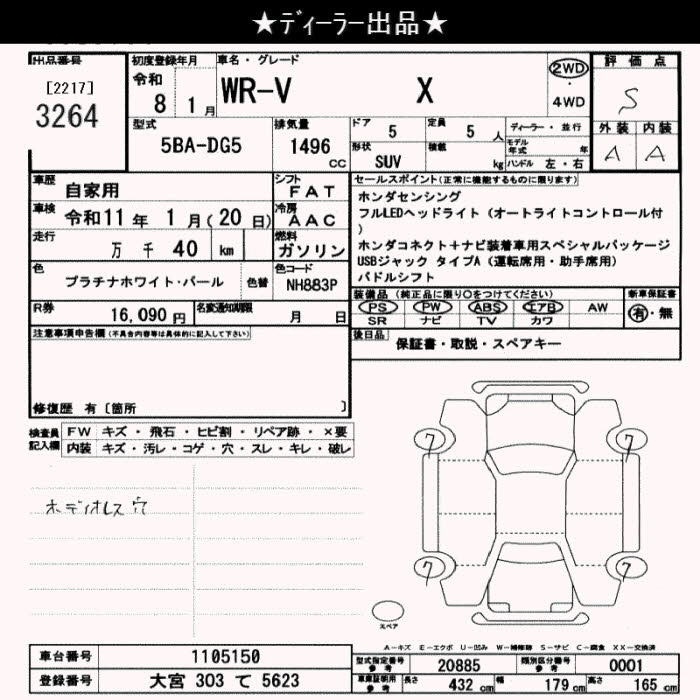 ★ディーラー出品★
出品番号
[2217]
3264
初度登録年月
令和
8 1 月
車名・グレード
WR-V X
2WD
・
4WD
評価点
S
外装 内装
A A
型式
5BA-DG5
排気量
1496 cc
ドア 5
定員 5 人
形状 SUV
積載 kg
ディーラー・並行
モデル年式 年
ハンドル 左・右
車歴 自家用
シフト FAT
車検 令和11年 1月(20日)
冷房 AAC
走行 万 千 40 km
燃料 ガソリン
色 プラチナホワイト・パール
色替
色コード NH883P
R券 16,090 円
名変通知期限 月 日
セールスポイント(正常に機能するものに限ります)
ホンダセンシング
フルLEDヘッドライト(オートライトコントロール付
)
ホンダコネクト+ナビ装着車用スペシャルパッケージ
USBジャック タイプA(運転席用・助手席用)
パドルシフト
装備品(純正品に限り○をつけてください)
PS PW ABS エアB AW
SR ナビ TV カワ
新車保証書
有・無
後日品 保証書・取説・スペアキー
注意事項申告欄(不具合内容等は具体的に記入して下さい)
修復歴 有〔箇所 〕
検査員記入欄
FW キズ・飛石・ヒビ割・リペア跡・×要
内装 キズ・汚レ・コゲ・穴・スレ・キレ・破レ
ホディオレス穴
7 7
7 7
スペア
A-キズ E-エクボ U-凹み W-補修跡 S-サビ C-腐食 XX-交換済
車台番号 1105150
登録番号 大宮 303 て 5623
型式指定番号 参考 20885
類別区分番号 参考 0001
車庫証明用 参考 長さ 432 cm 幅 179 cm 高さ 165 cm